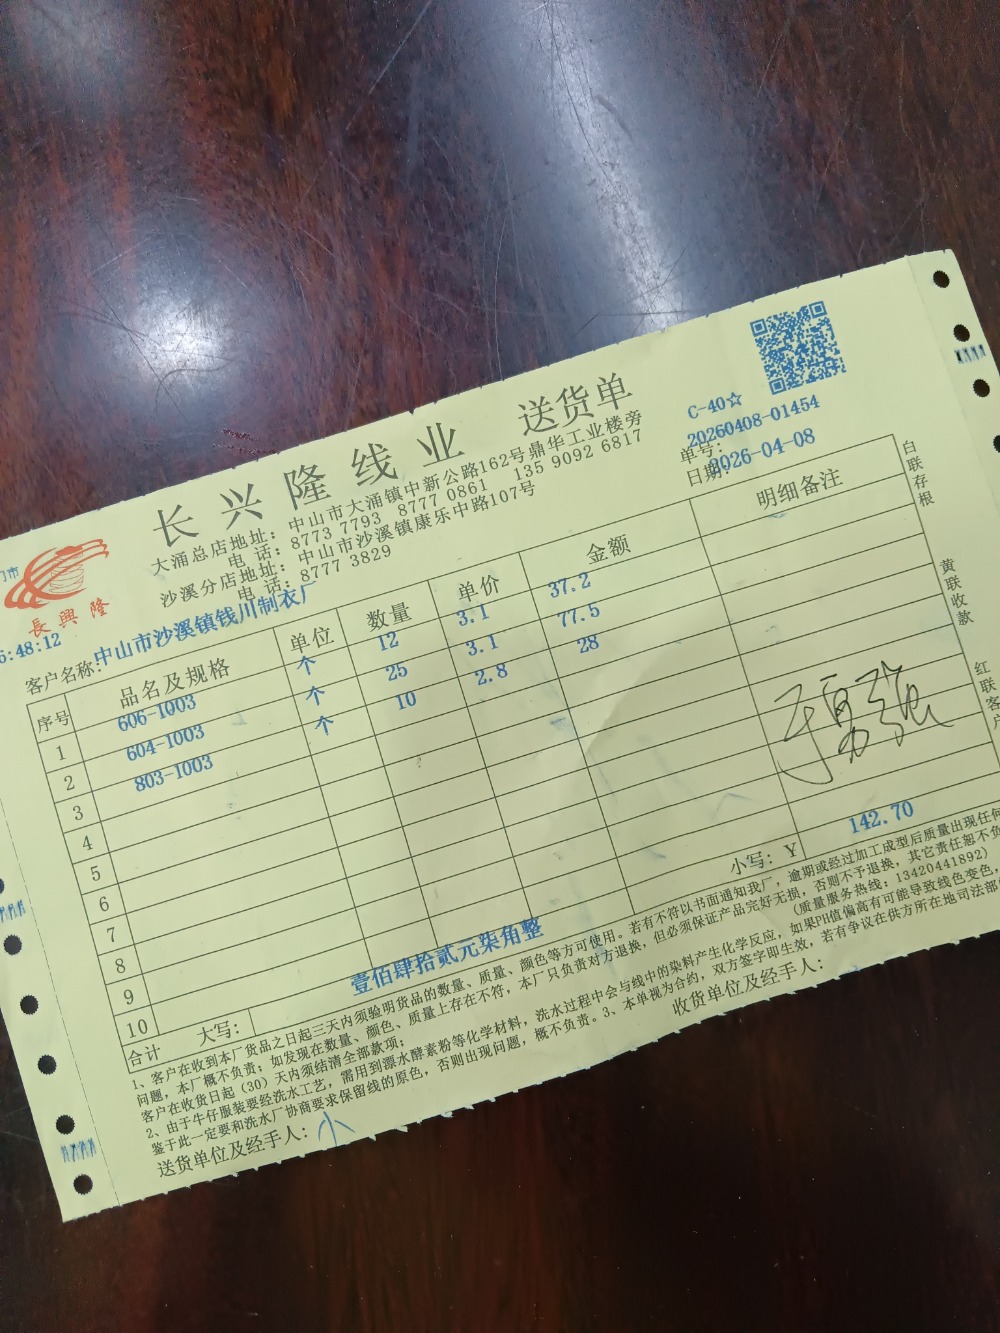 长兴隆线业 送货单
C-40☆
大涌总店地址: 中山市大涌镇中新公路162号鼎华工业楼旁
电 话: 8773 7793 8777 0861 135 9092 6817
沙溪分店地址: 中山市沙溪镇康乐中路107号
电 话: 8777 3829
单号: 20260408-01454
日期: 2026-04-08
長興隆
:48:12
客户名称: 中山市沙溪镇钱川制衣厂
序号 品名及规格 单位 数量 单价 金额 明细备注
1 606-1003 个 12 3.1 37.2
2 604-1003 个 25 3.1 77.5
3 803-1003 个 10 2.8 28
4
5
6
7
8
9
10
合计 大写: 壹佰肆拾贰元柒角整 小写: Y 142.70
1、客户在收到本厂货品之日起三天内须验明货品的数量、质量、颜色等方可使用。若有不符以书面通知我厂,逾期或经过加工成型后质量出现任何
问题,本厂概不负责;如发现在数量、颜色、质量上存在不符,本厂只负责对方退换,但必须保证产品完好无损,否则不予退换,其它责任恕不负
客户在收货日起(30)天内须结清全部款项; (质量服务热线: 13420441892)
2、由于牛仔服装要经洗水工艺,需用到漂水酵素粉等化学材料,洗水过程中会与线中的染料产生化学反应,如果PH值偏高有可能导致线色变色,
鉴于此一定要和洗水厂协商要求保留线的原色,否则出现问题,概不负责。3、本单视为合约,双方签字即生效,若有争议在供方所在地司法部
送货单位及经手人: 小
收货单位及经手人:
白联存根
黄联收款
红联客户